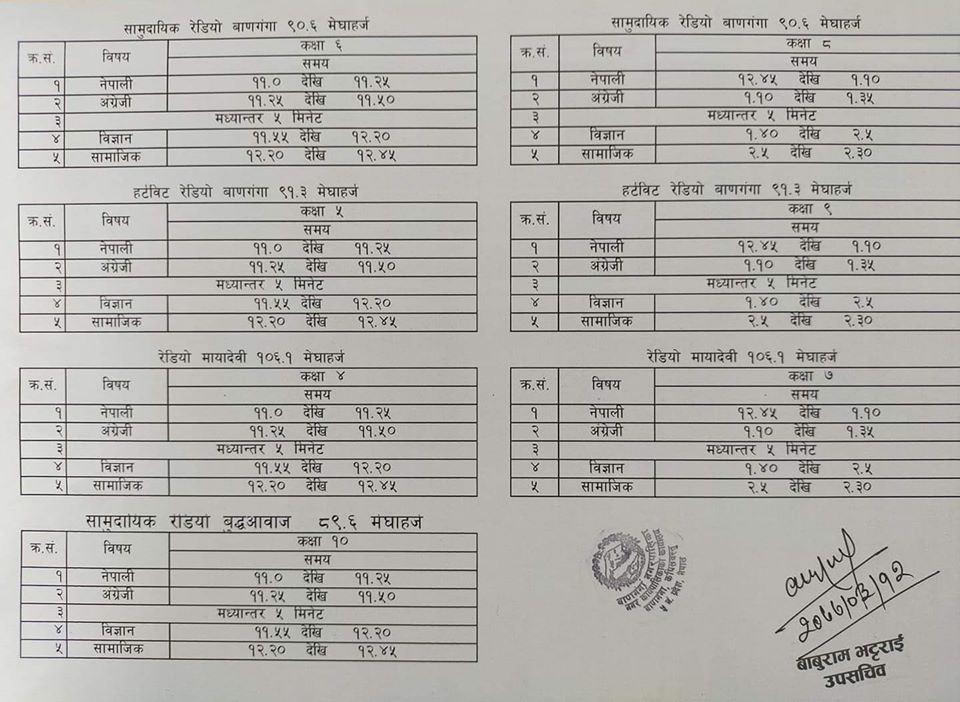 सामुदायिक रेडियो बाणगंगा ९०.६ मेघाहर्ज
क्र.सं. विषय कक्षा ६
समय
१ नेपाली ११.० देखि ११.२५
२ अंग्रेजी ११.२५ देखि ११.५०
३ मध्यान्तर ५ मिनेट
४ विज्ञान ११.५५ देखि १२.२०
५ सामाजिक १२.२० देखि १२.४५
हर्टविट रेडियो बाणगंगा ९१.३ मेघाहर्ज
क्र.सं. विषय कक्षा ५
समय
१ नेपाली ११.० देखि ११.२५
२ अंग्रेजी ११.२५ देखि ११.५०
३ मध्यान्तर ५ मिनेट
४ विज्ञान ११.५५ देखि १२.२०
५ सामाजिक १२.२० देखि १२.४५
रेडियो मायादेवी १०६.१ मेघाहर्ज
क्र.सं. विषय कक्षा ४
समय
१ नेपाली ११.० देखि ११.२५
२ अंग्रेजी ११.२५ देखि ११.५०
३ मध्यान्तर ५ मिनेट
४ विज्ञान ११.५५ देखि १२.२०
५ सामाजिक १२.२० देखि १२.४५
सामुदायिक रेडियो बुद्धआवाज ८९.६ मेघाहर्ज
क्र.सं. विषय कक्षा १०
समय
१ नेपाली ११.० देखि ११.२५
२ अंग्रेजी ११.२५ देखि ११.५०
३ मध्यान्तर ५ मिनेट
४ विज्ञान ११.५५ देखि १२.२०
५ सामाजिक १२.२० देखि १२.४५
सामुदायिक रेडियो बाणगंगा ९०.६ मेघाहर्ज
क्र.सं. विषय कक्षा ८
समय
१ नेपाली १२.४५ देखि १.१०
२ अंग्रेजी १.१० देखि १.३५
३ मध्यान्तर ५ मिनेट
४ विज्ञान १.४० देखि २.५
५ सामाजिक २.५ देखि २.३०
हर्टविट रेडियो बाणगंगा ९१.३ मेघाहर्ज
क्र.सं. विषय कक्षा ९
समय
१ नेपाली १२.४५ देखि १.१०
२ अंग्रेजी १.१० देखि १.३५
३ मध्यान्तर ५ मिनेट
४ विज्ञान १.४० देखि २.५
५ सामाजिक २.५ देखि २.३०
रेडियो मायादेवी १०६.१ मेघाहर्ज
क्र.सं. विषय कक्षा ७
समय
१ नेपाली १२.४५ देखि १.१०
२ अंग्रेजी १.१० देखि १.३५
३ मध्यान्तर ५ मिनेट
४ विज्ञान १.४० देखि २.५
५ सामाजिक २.५ देखि २.३०
बाणगंगा नगरपालिका
नगर कार्यपालिकाको कार्यालय
बाणगंगा, कपिलवस्तु
नेपाल
बाबुराम भट्टराई
उपसचिव